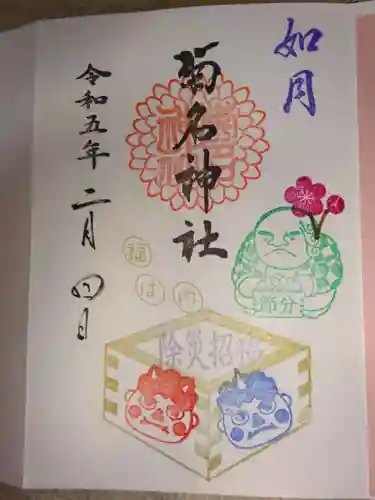 如月
菊名神社
令和五年 二月 四日
福
は
内
節分
除災招福